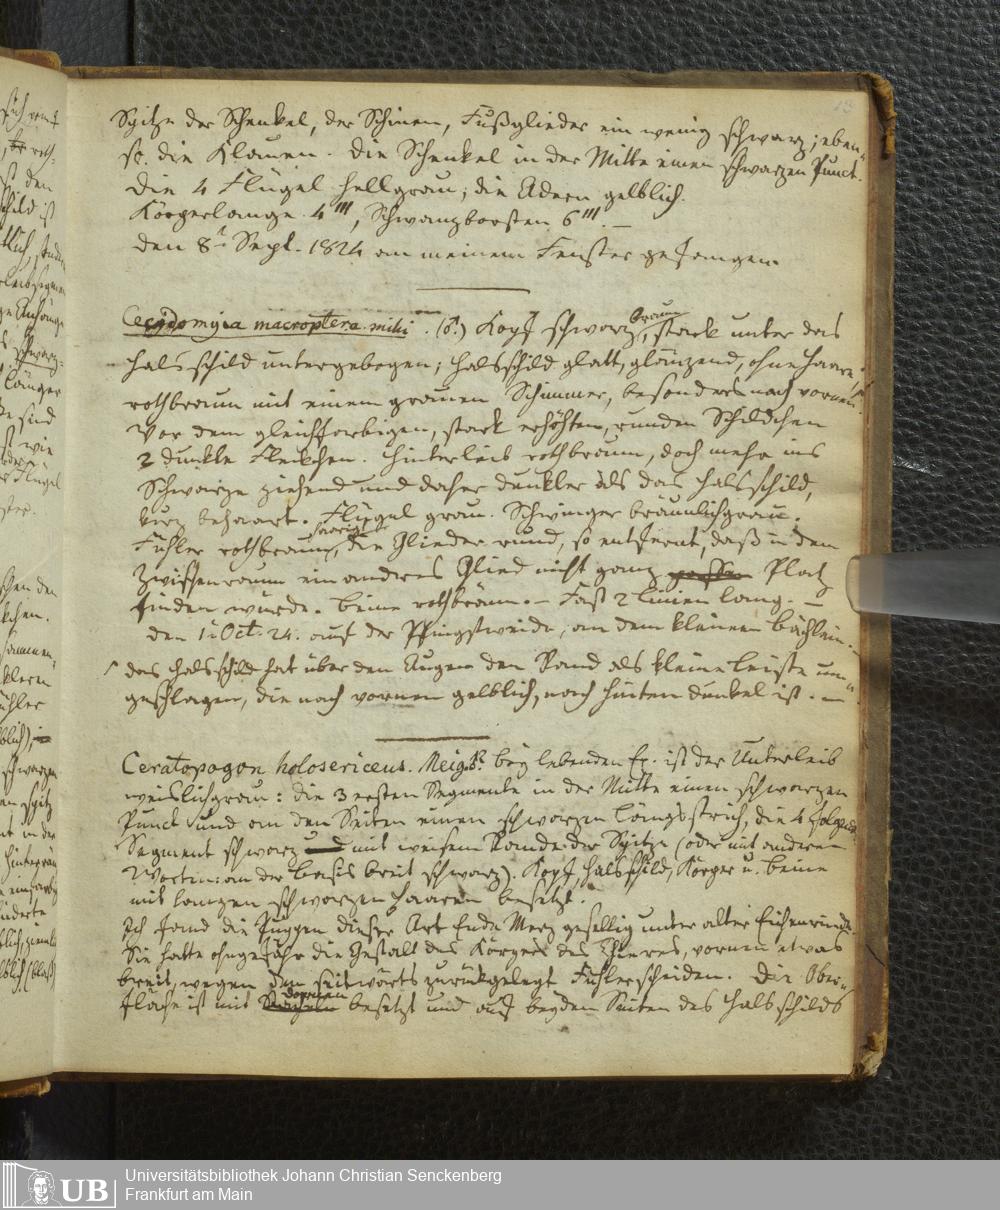 13
Spitze der Schenkel, der Schinen, Fußglieder ein wenig schwarz; eben„
so die Klauen. Die Schenkel in der Mitte einen schwarzen Punct.
Die 4 Flügel hellgrau; die Adern gelblich.
Körperlange 4''', Schwanzborsten 6'''. —
den 8t Sept. 1824 an meinem Fenster gefangen.
Cecydomyia macroptera mihi. (♂.) Kopf schwarzbraun, stark unter das
Halsschild untergebogen; Halsschild glatt, glänzend, ohne Haare,
rothbraun mit einem grauen Schimmer, besonders nach vornen.
Vor dem gleichfarbigen, stark erhöhten, runden Schildchen
2 dunkle Fleckchen. Hinterleib rothbraun, doch mehr ins
Schwarze ziehend und daher dunkler als das Halsschild,
kurz behaart. Flügel grau. Schwinger bräunlichgrau.
Fühler rothbraun, haarigte, die Glieder rund, so entfernt, daß in dem
Zwischenraum ein anderes Glied nicht ganz Platz
finden würde. Beine rothbraun. — Fast 2 Linien lang. —
den 1. Oct. 24. auf der Pfingstweide, an dem kleinen Bächlein. —
das Halsschild hat über den Augen den Rand als kleine Leiste um„
geschlagen, die nach vornen gelblich, nach hinten dunkel ist. —
Ceratopogon holosericeus. Meig. bey lebenden Ex. ist der Unterleib
weislichgrau: die 3 ersten Segmente in der Mitte einen schwarzen
Punct und an den Seiten einen schwarzen Längsstrich, die 4 folgende
Segment schwarz mit weisem Rande der Spitze (oder mit anderen
Worten: an der Basis breit schwarz). Kopf, Halsschild, Körper u. Beine
mit langen schwarzen Haaren besetzt.
Ich fand die Puppen dieser Art Ende Merz gesellig unter alter Eichenrinde
Sie hatte ohngefähr die Gestalt des Körpers des Thieres, vornen etwas
breit, wegen den seitwärts zurückgelegt Fühlerscheiden. Die Ober„
fläche ist mit Dornen besetzt und auf beyden Seiten des Halsschilds
Universitätsbibliothek Johann Christian Senckenberg
Frankfurt am Main
UB